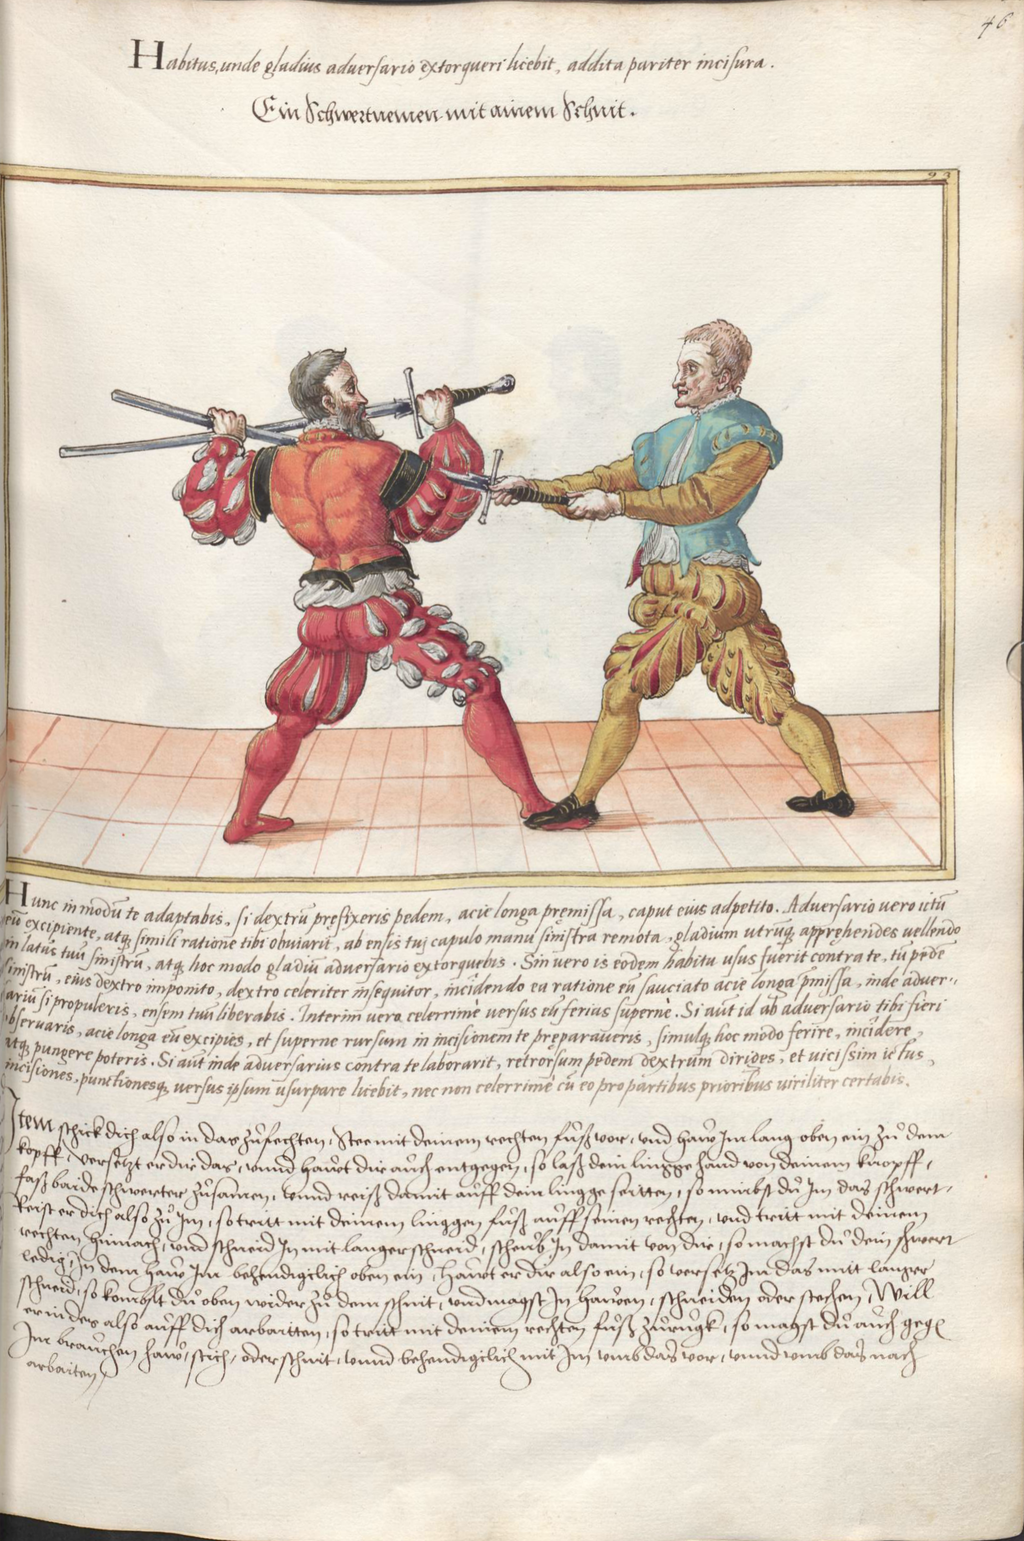 46
Habitus, unde gladius adversario extorqueri licebit, addita pariter incisura.
Ein Schwertnemen mit ainem Schnit.
93
Hunc in modū te adaptabis, si dextrū pręfixeris pedem, acie longa pręmissa, caput eius adpetito. Adversario vero ictū
eū excipiente, atq; simili ratione tibi obviariť, ab ensis tui capulo manu sinistra remota, gladium utrūq; apprehendes vellendo
in latus tuū sinistrū, atq; hoc modo gladiū adversario extorquebis. Sin vero is eodem habitu usus fuerit contra te, tū pede
sinistrū, eius dextro imponito, dextro celeriter insequitor, incidendo ea ratione eū sauciato acie longa pmissa, inde adver-
sariū si propuleris, ensem tuū liberabis. Interim vero celerrime versus eū ferius superne. Si aut id ab adversario tibi fieri
observaris, acie longa eū excipies, et superne rursum in incisionem te pręparaveris, simulq; hoc modo ferire, incidere,
atq; pungere poteris. Si aut inde adversarius contra te laborarit, retrorsum pedem dextrum diriges, et vicissim ictus,
incisiones, punctionesq; versus ipsum usurpare licebit, nec non celerrime cū eo pro partibus prioribus viriliter certabis.
Item schick dich also in das zůfechten, stee mit deinem rechten fůß vor, vnd haw Im lang oben ein zů dem
kopff, versetzt er dir das, vnnd hawt dir auch entgegen, so laß dein lingge hand von deinem knopff,
faß baide schwerter zůsamen, vnnd reiß damit auff dein lingge seitten, so nimbst dů Im das schwert,
Reist er dich also zů Im, so tritt mit deinem linggen fůß auff seinen rechten, vnd tritt mit deinem
rechten hinnach, vnd schneid In mit langer schneid, scheub In damit von dir, so machst dů dein schwert
ledig, In dem haw Im behendigclich oben ein, hawt er dir also ein, so versetz Im das mitt langer
schneid, so kombst dů oben wider zů dem schnit, vnd magst In hawen, schneiden oder stechen, Will
er indes also auff dich arbaitten, so tritt mit deinem rechten fůß zůrugk, so magst dů auch gegē
Im brauchen haw, stich, oder schnit, vnnd behendigclich mit Im vmb das vor, vnnd vmb das nach
arbaiten